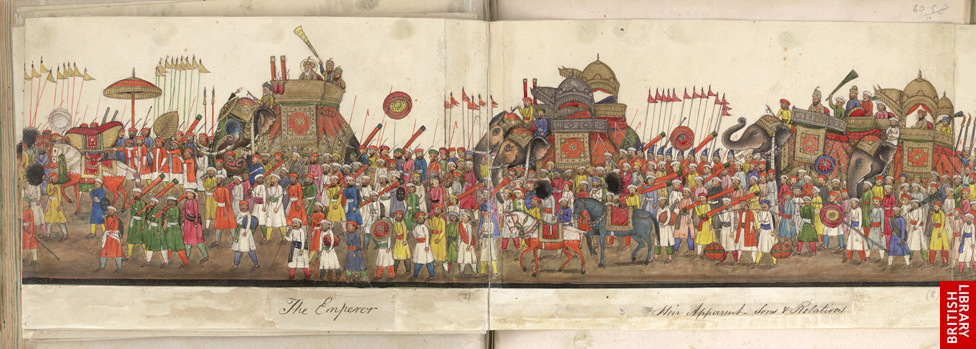 60
The Emperor
(7)
Heir Apparent - Sons & Relatives.
(8
BRITISH
LIBRARY